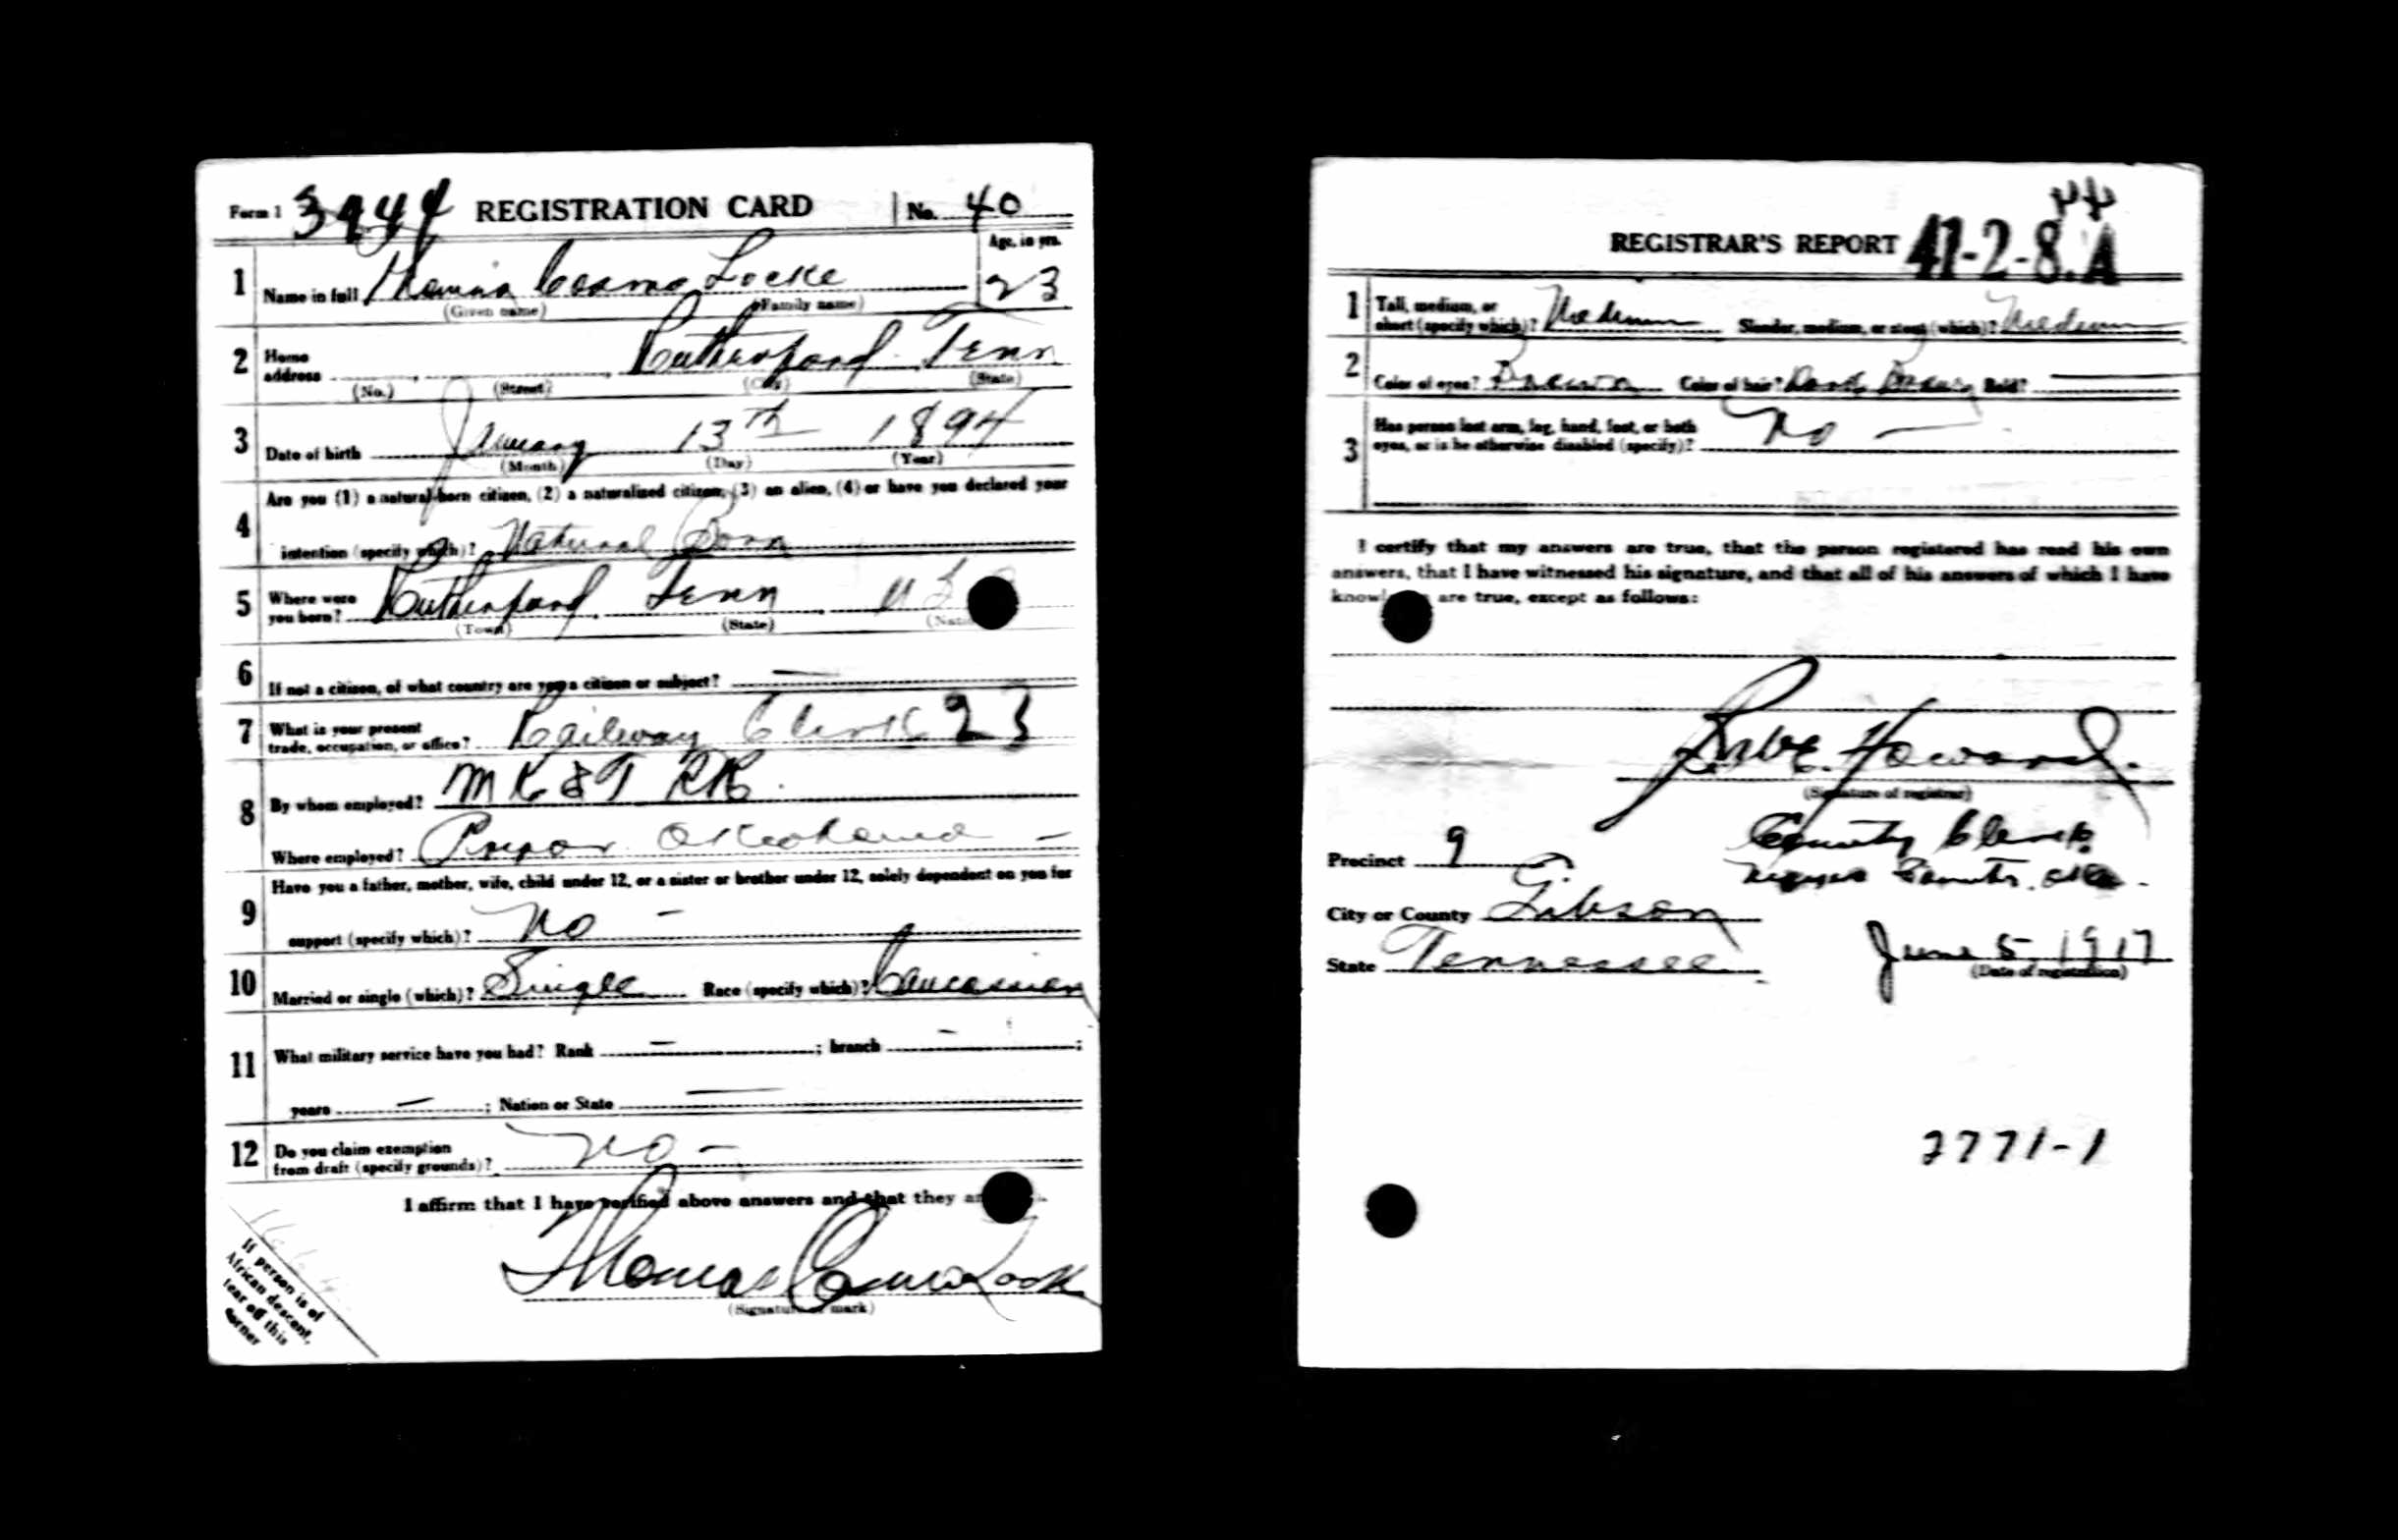 Form 1 3944 REGISTRATION CARD No. 40
1 Name in full Thomas Cosmo Locke Age, in yrs. 23
(Given name) (Family name)
2 Home address Rutherford Tenn
(No.) (Street) (City) (State)
3 Date of birth January 13th 1894
(Month) (Day) (Year)
4 Are you (1) a natural-born citizen, (2) a naturalized citizen, (3) an alien, (4) or have you declared your
intention (specify which)? Natural Born
5 Where were you born? Rutherford Tenn U S
(Town) (State)
6 If not a citizen, of what country are you a citizen or subject? —
7 What is your present trade, occupation, or office? Railway Clerk 23
8 By whom employed? M K & T RR.
Where employed? Pryor Oklahoma –
9 Have you a father, mother, wife, child under 12, or a sister or brother under 12, solely dependent on you for
support (specify which)? No –
10 Married or single (which)? Single Race (specify which)? Caucasian
11 What military service have you had? Rank — ; branch – ;
years — ; Nation or State —
12 Do you claim exemption from draft (specify grounds)? No –
I affirm that I have verified above answers and that they
Thomas Cosmo Locke
(Signature or mark)
If person is of
African descent,
tear off this
corner
REGISTRAR'S REPORT 41-2-8.A
1 Tall, medium, or short (specify which)? Medium Slender, medium, or stout (which)? Medium
2 Color of eyes? Brown Color of hair? Dark Brown Bald? —
3 Has person lost arm, leg, hand, foot, or both
eyes, or is he otherwise disabled (specify)? No —
I certify that my answers are true, that the person registered has read his own
answers, that I have witnessed his signature, and that all of his answers of which I have
are true, except as follows:
Howard.
(Signature of registrar)
Precinct 9 County Clerk
City or County Gibson
State Tennessee June 5, 1917
(Date of registration)
2771-1